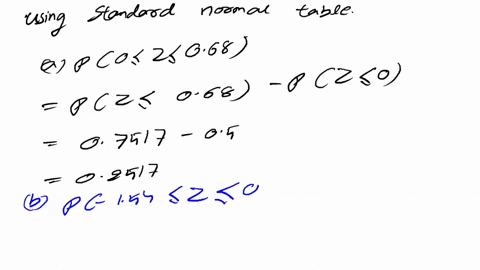 using Standard normal table.
(a) P(0≤Z≤0.68)
= P(Z≤ 0.68) - P(Z≤0)
= 0.7517 - 0.5
= 0.2517
(b) P(-1.54 ≤Z≤0